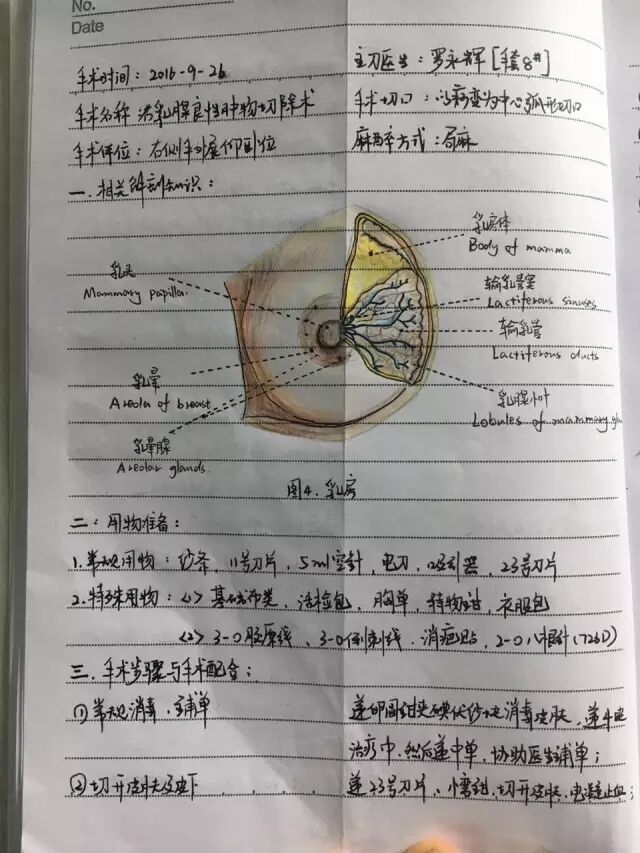 No.
Date
手术时间：2016-9-26 主刀医生：罗永辉[手套8#]
手术名称 乳腺良性肿物切除术 手术切口：以病变为中心弧形切口
手术体位：右侧手外展仰卧位 麻醉方式：局麻
一．相关解剖知识：
乳房体
Body of mamma
乳头
Mammary papilla
输乳管窦
Lactiferous sinuses
输乳管
Lactiferous ducts
乳晕
Areola of breast
乳腺小叶
Lobules of mammary gla
乳晕腺
Areolar glands
图4．乳房
二：用物准备：
1.常规用物：纱条，11号刀片，5ml空针，电刀，吸引器，23号刀片
2.特殊用物：<1> 基础布类，活检包，胸单，持物钳，衣服包
<2> 3-0胶原线，3-0倒刺线．消疤贴，2-0八根针(726D)
三．手术步骤与手术配合：
①常规消毒、铺单 递卵圆钳夹碘伏纱块消毒皮肤，递4块
治疗巾．然后递中单，协助医生铺单；
②切开皮肤及皮下 递23号刀片、小弯钳．切开皮肤，电凝止血；